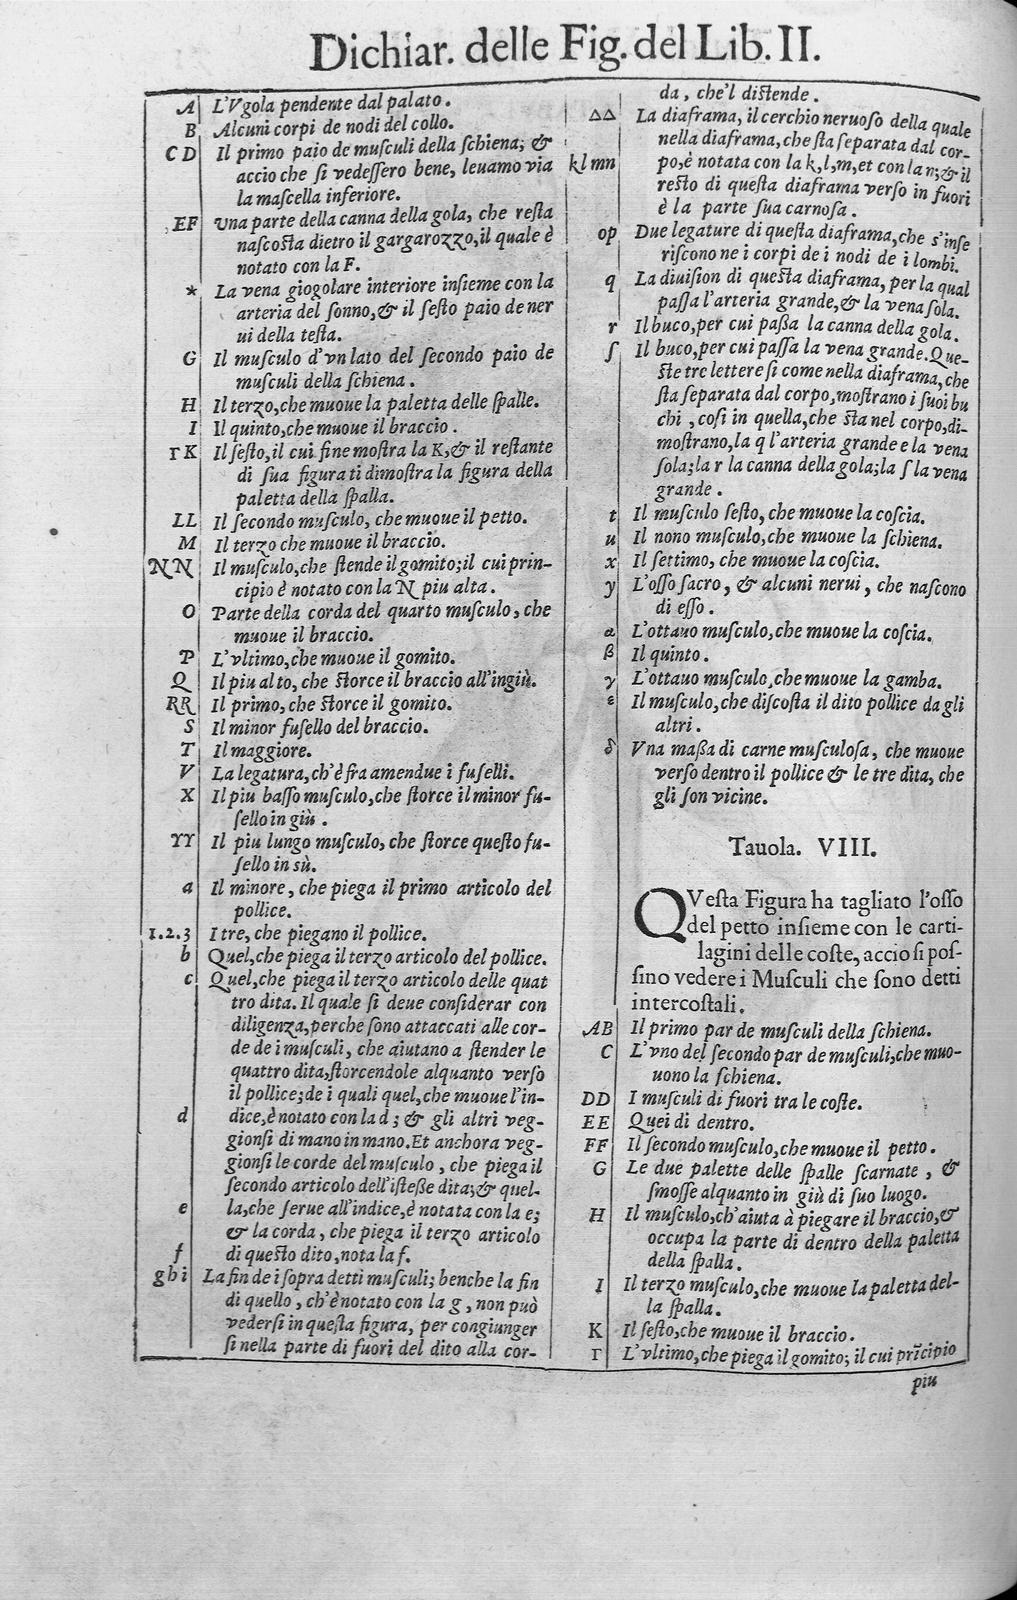 Dichiar. delle Fig. del Lib. II.
A L'Vgola pendente dal palato.
B Alcuni corpi de nodi del collo.
C D Il primo paio de musculi della schiena; &
accio che si vedessero bene, leuamo via
la mascella inferiore.
EF Vna parte della canna della gola, che resta
nascosta dietro il gargarozzo, il quale è
notato con la F.
* La vena giogolare interiore insieme con la
arteria del sonno, & il sesto paio de ner
ui della testa.
G Il musculo d'vn lato del secondo paio de
musculi della schiena.
H Il terzo, che muoue la paletta delle spalle.
I Il quinto, che muoue il braccio.
Γ K Il sesto, il cui fine mostra la K, & il restante
di sua figura ti dimostra la figura della
paletta della spalla.
LL Il secondo musculo, che muoue il petto.
M Il terzo che muoue il braccio.
NN Il musculo, che stende il gomito; il cui prin-
cipio è notato con la N piu alta.
O Parte della corda del quarto musculo, che
muoue il braccio.
P L'vltimo, che muoue il gomito.
Q Il piu alto, che storce il braccio all'ingiù.
RR Il primo, che storce il gomito.
S Il minor fusello del braccio.
T Il maggiore.
V La legatura, ch'è fra amendue i fuselli.
X Il piu basso musculo, che storce il minor fu-
sello in giù.
YY Il piu lungo musculo, che storce questo fu-
sello in sù.
a Il minore, che piega il primo articolo del
pollice.
1.2.3 I tre, che piegano il pollice.
b Quel, che piega il terzo articolo del pollice.
c Quel, che piega il terzo articolo delle quat
tro dita. Il quale si deue considerar con
diligenza, perche sono attaccati alle cor-
de de i musculi, che aiutano a stender le
quattro dita, storcendole alquanto verso
il pollice; de i quali quel, che muoue l'in-
d dice, è notato con la d; & gli altri veg-
gionsi di mano in mano. Et anchora veg-
gionsi le corde del musculo, che piega il
secondo articolo dell'istesse dita; & quel-
e la, che serue all'indice, è notata con la e;
& la corda, che piega il terzo articolo
f di questo dito, nota la f.
g h i La fin de i sopra detti musculi; benche la fin
di quello, ch'è notato con la g, non può
vedersi in questa figura, per congiunger
si nella parte di fuori del dito alla cor-
da, che'l distende.
ΔΔ La diaframa, il cerchio neruoso della quale
nella diaframa, che sta separata dal cor-
k l m n po, è notata con la k, l, m, et con la n; & il
resto di questa diaframa verso in fuori
è la parte sua carnosa.
op Due legature di questa diaframa, che s'inse
riscono ne i corpi de i nodi de i lombi.
q La diuision di questa diaframa, per la qual
passa l'arteria grande, & la vena sola.
r Il buco, per cui passa la canna della gola.
ſ Il buco, per cui passa la vena grande. Que-
ste tre lettere si come nella diaframa, che
sta separata dal corpo, mostrano i suoi bu
chi, cosi in quella, che sta nel corpo, di-
mostrano, la q l'arteria grande e la vena
sola; la r la canna della gola; la ſ la vena
grande.
t Il musculo sesto, che muoue la coscia.
u Il nono musculo, che muoue la schiena.
x Il settimo, che muoue la coscia.
y L'osso sacro, & alcuni nerui, che nascono
di esso.
α L'ottauo musculo, che muoue la coscia.
β Il quinto.
γ L'ottauo musculo, che muoue la gamba.
ε Il musculo, che discosta il dito pollice da gli
altri.
δ Vna massa di carne musculosa, che muoue
verso dentro il pollice & le tre dita, che
gli son vicine.
Tauola. VIII.
QVesta Figura ha tagliato l'osso
del petto insieme con le carti-
lagini delle coste, accio si pos-
sino vedere i Musculi che sono detti
intercostali.
AB Il primo par de musculi della schiena.
C L'vno del secondo par de musculi, che muo-
uono la schiena.
DD I musculi di fuori tra le coste.
EE Quei di dentro.
FF Il secondo musculo, che muoue il petto.
G Le due palette delle spalle scarnate, &
smosse alquanto in giù di suo luogo.
H Il musculo, ch'aiuta à piegare il braccio, &
occupa la parte di dentro della paletta
della spalla.
I Il terzo musculo, che muoue la paletta del-
la spalla.
K Il sesto, che muoue il braccio.
Γ L'vltimo, che piega il gomito; il cui prīcipio
piu